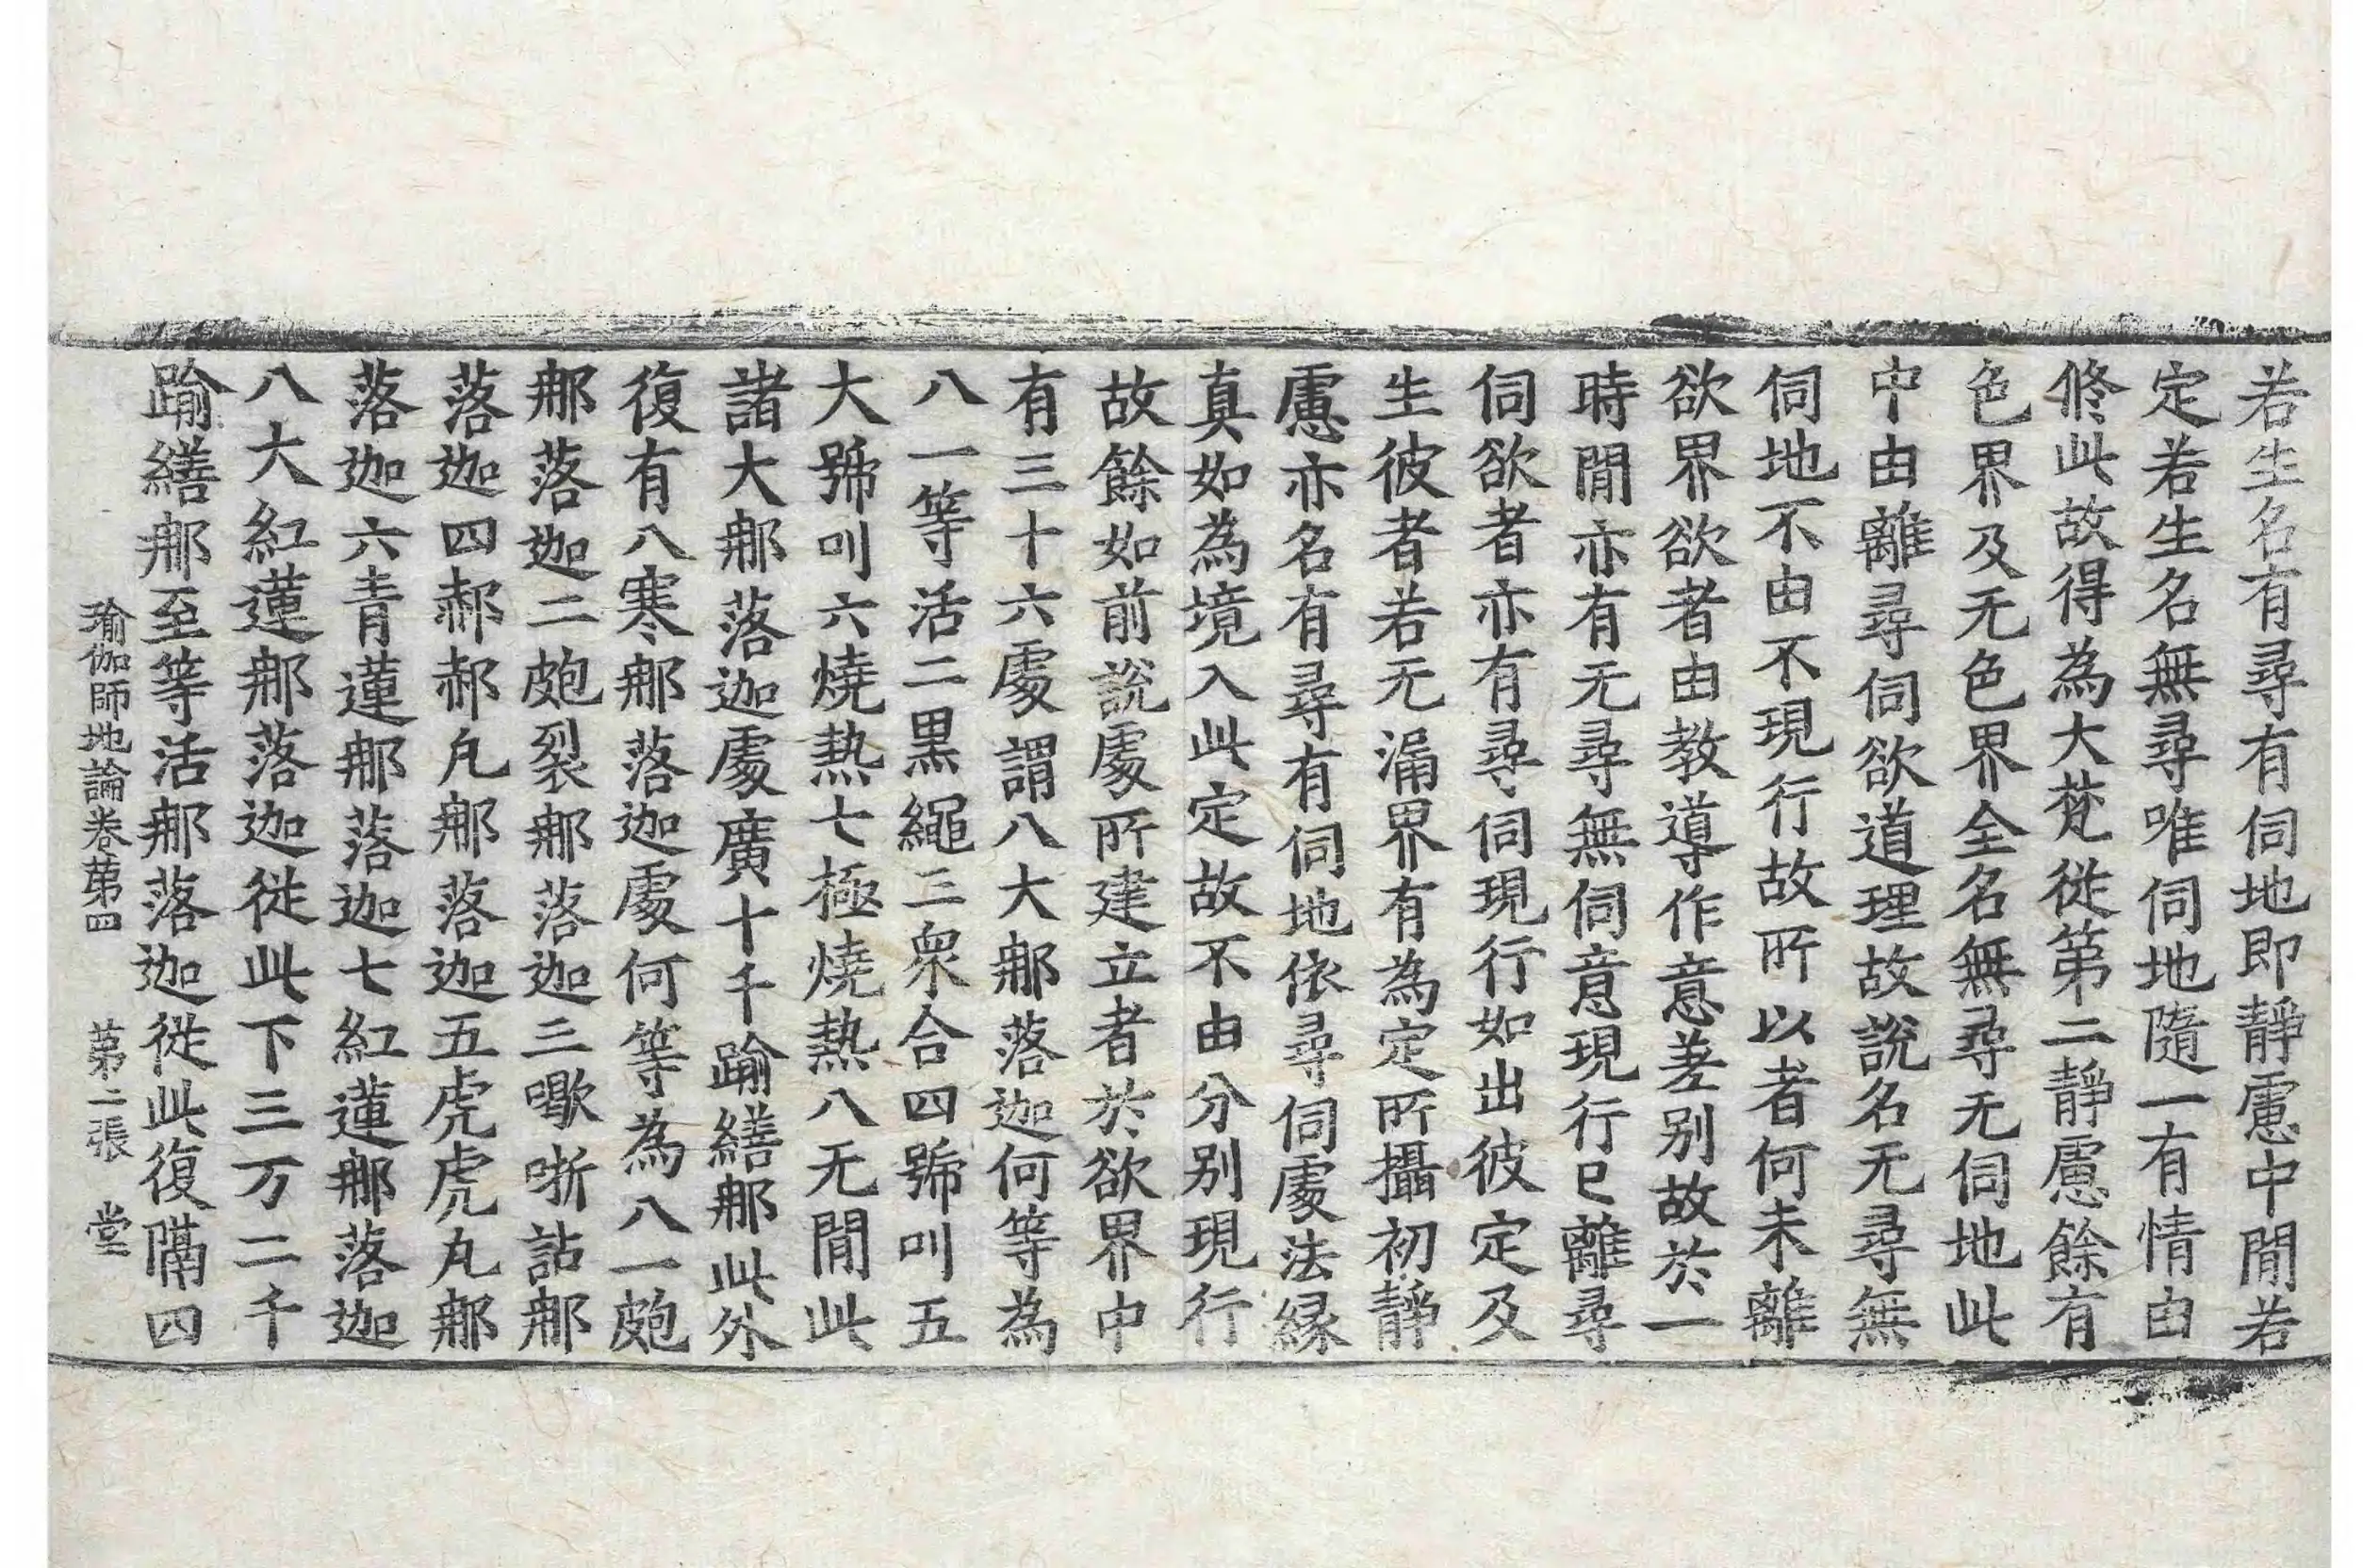 若生名有尋有伺地即靜慮中閒若
定若生名無尋唯伺地隨一有情由
修此故得為大梵從第二靜慮餘有
色界及无色界全名無尋无伺地此
中由離尋伺欲道理故說名无尋無
伺地不由不現行故所以者何未離
欲界欲者由教導作意差别故於一
時閒亦有无尋無伺意現行已離尋
伺欲者亦有尋伺現行如出彼定及
生彼者若无漏界有為定所攝初靜
慮亦名有尋有伺地依尋伺處法緣
真如為境入此定故不由分别現行
故餘如前說處所建立者於欲界中
有三十六處謂八大那落迦何等為
八一等活二黑繩三衆合四號叫五
大號叫六燒熱七極燒熱八无閒此
諸大那落迦處廣十千踰繕那此外
復有八寒那落迦處何等為八一皰
那落迦二皰裂那落迦三㗁哳詀那
落迦四郝郝凡那落迦五虎虎凡那
落迦六青蓮那落迦七紅蓮那落迦
八大紅蓮那落迦從此下三万二千
踰繕那至等活那落迦從此復隔四
瑜伽師地論卷第四 第二張 堂